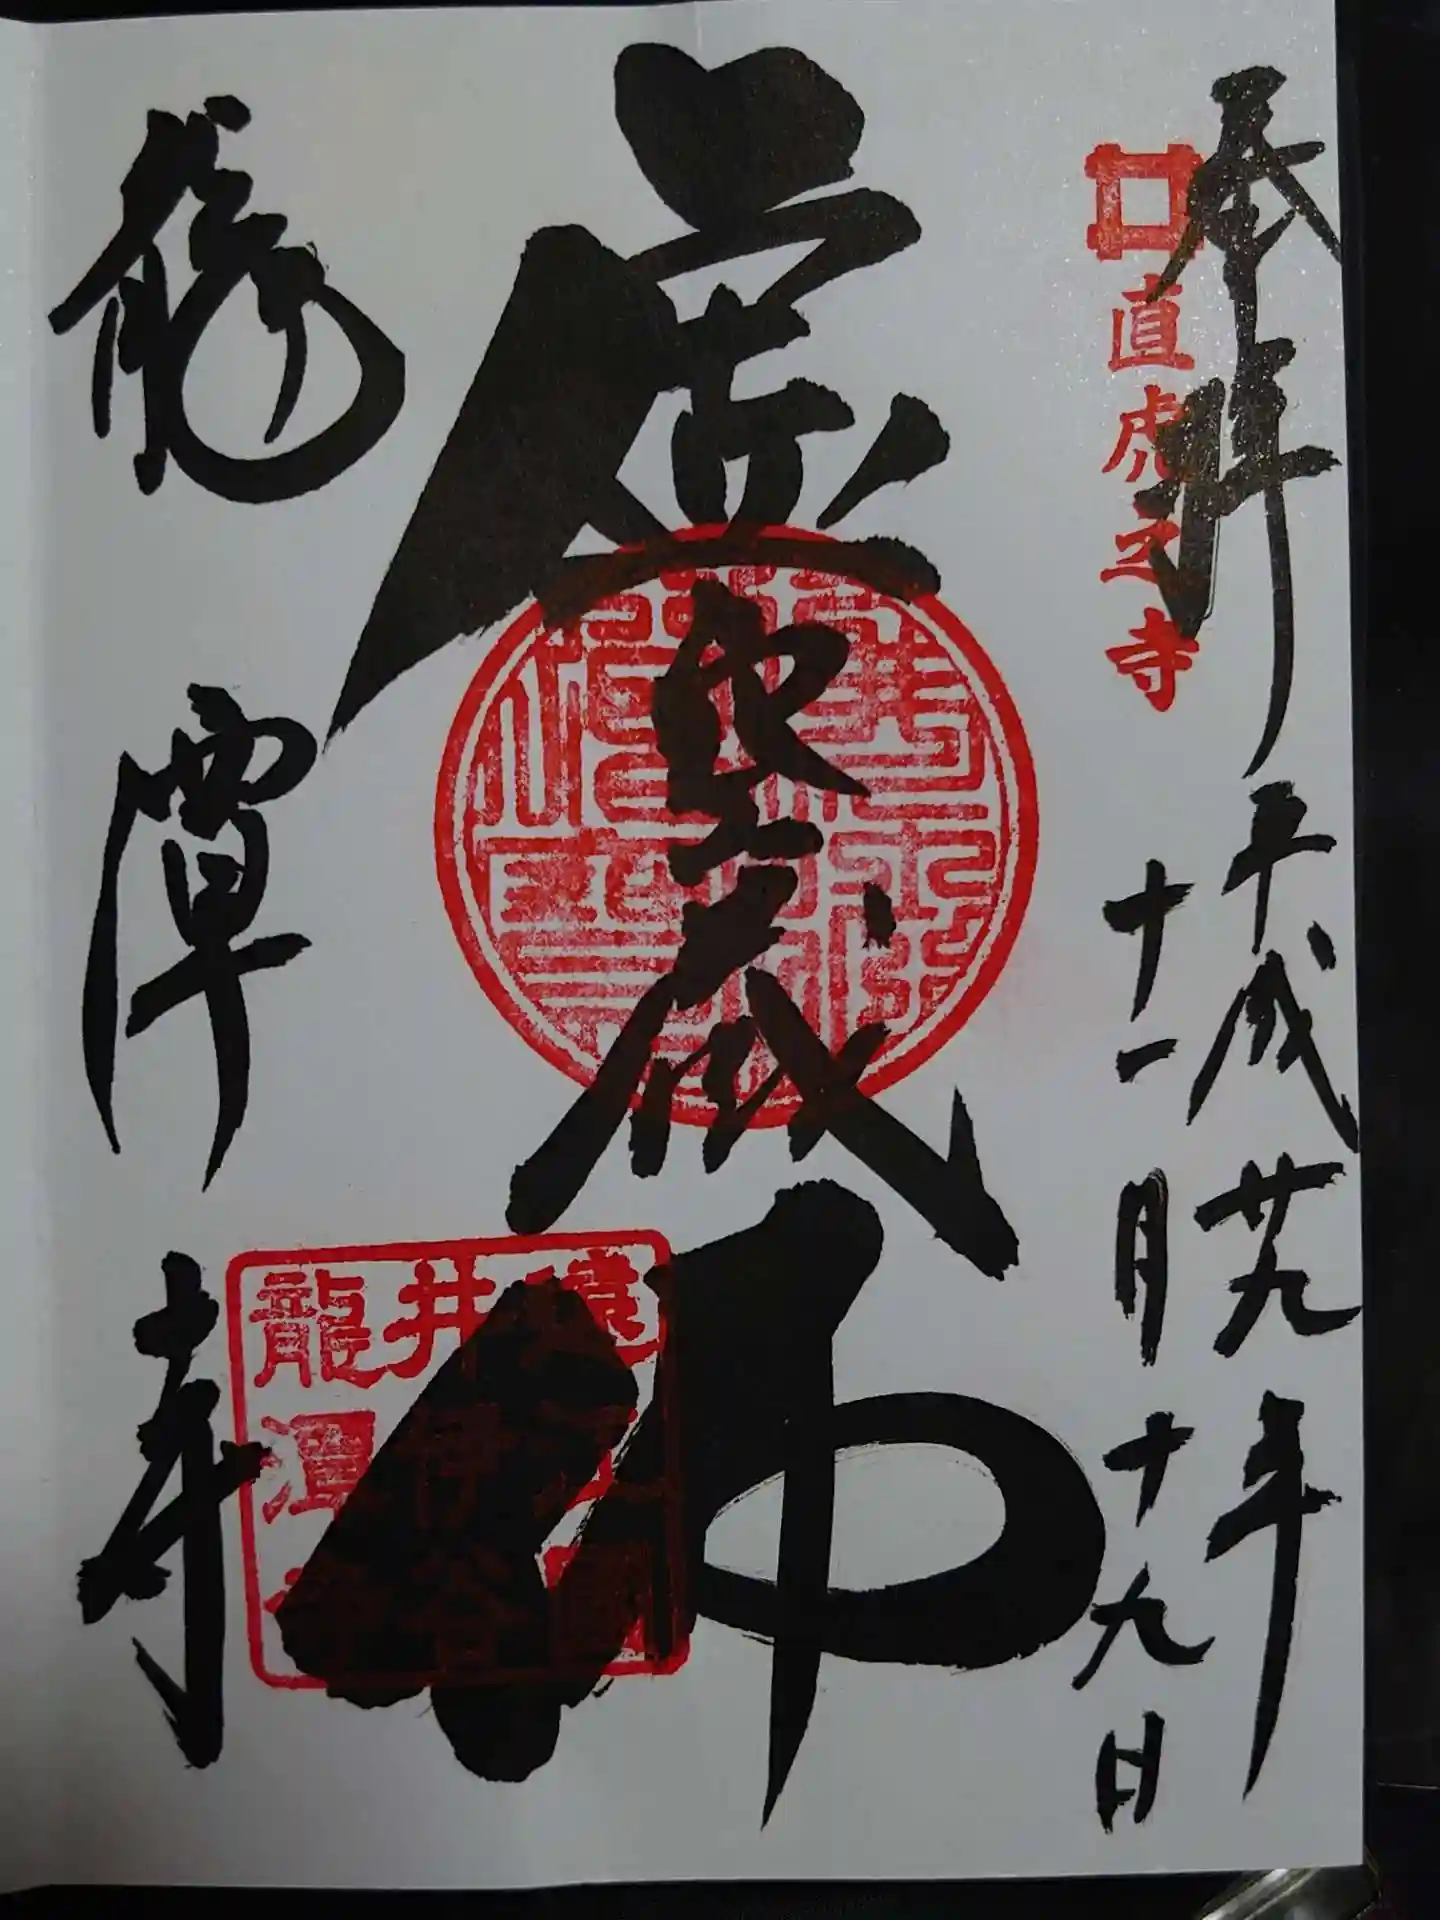 奉拝 平成廿九年
十一月十九日
直虎之寺
虚空蔵佛
龍潭寺
遠江國
井伊谷
龍潭寺